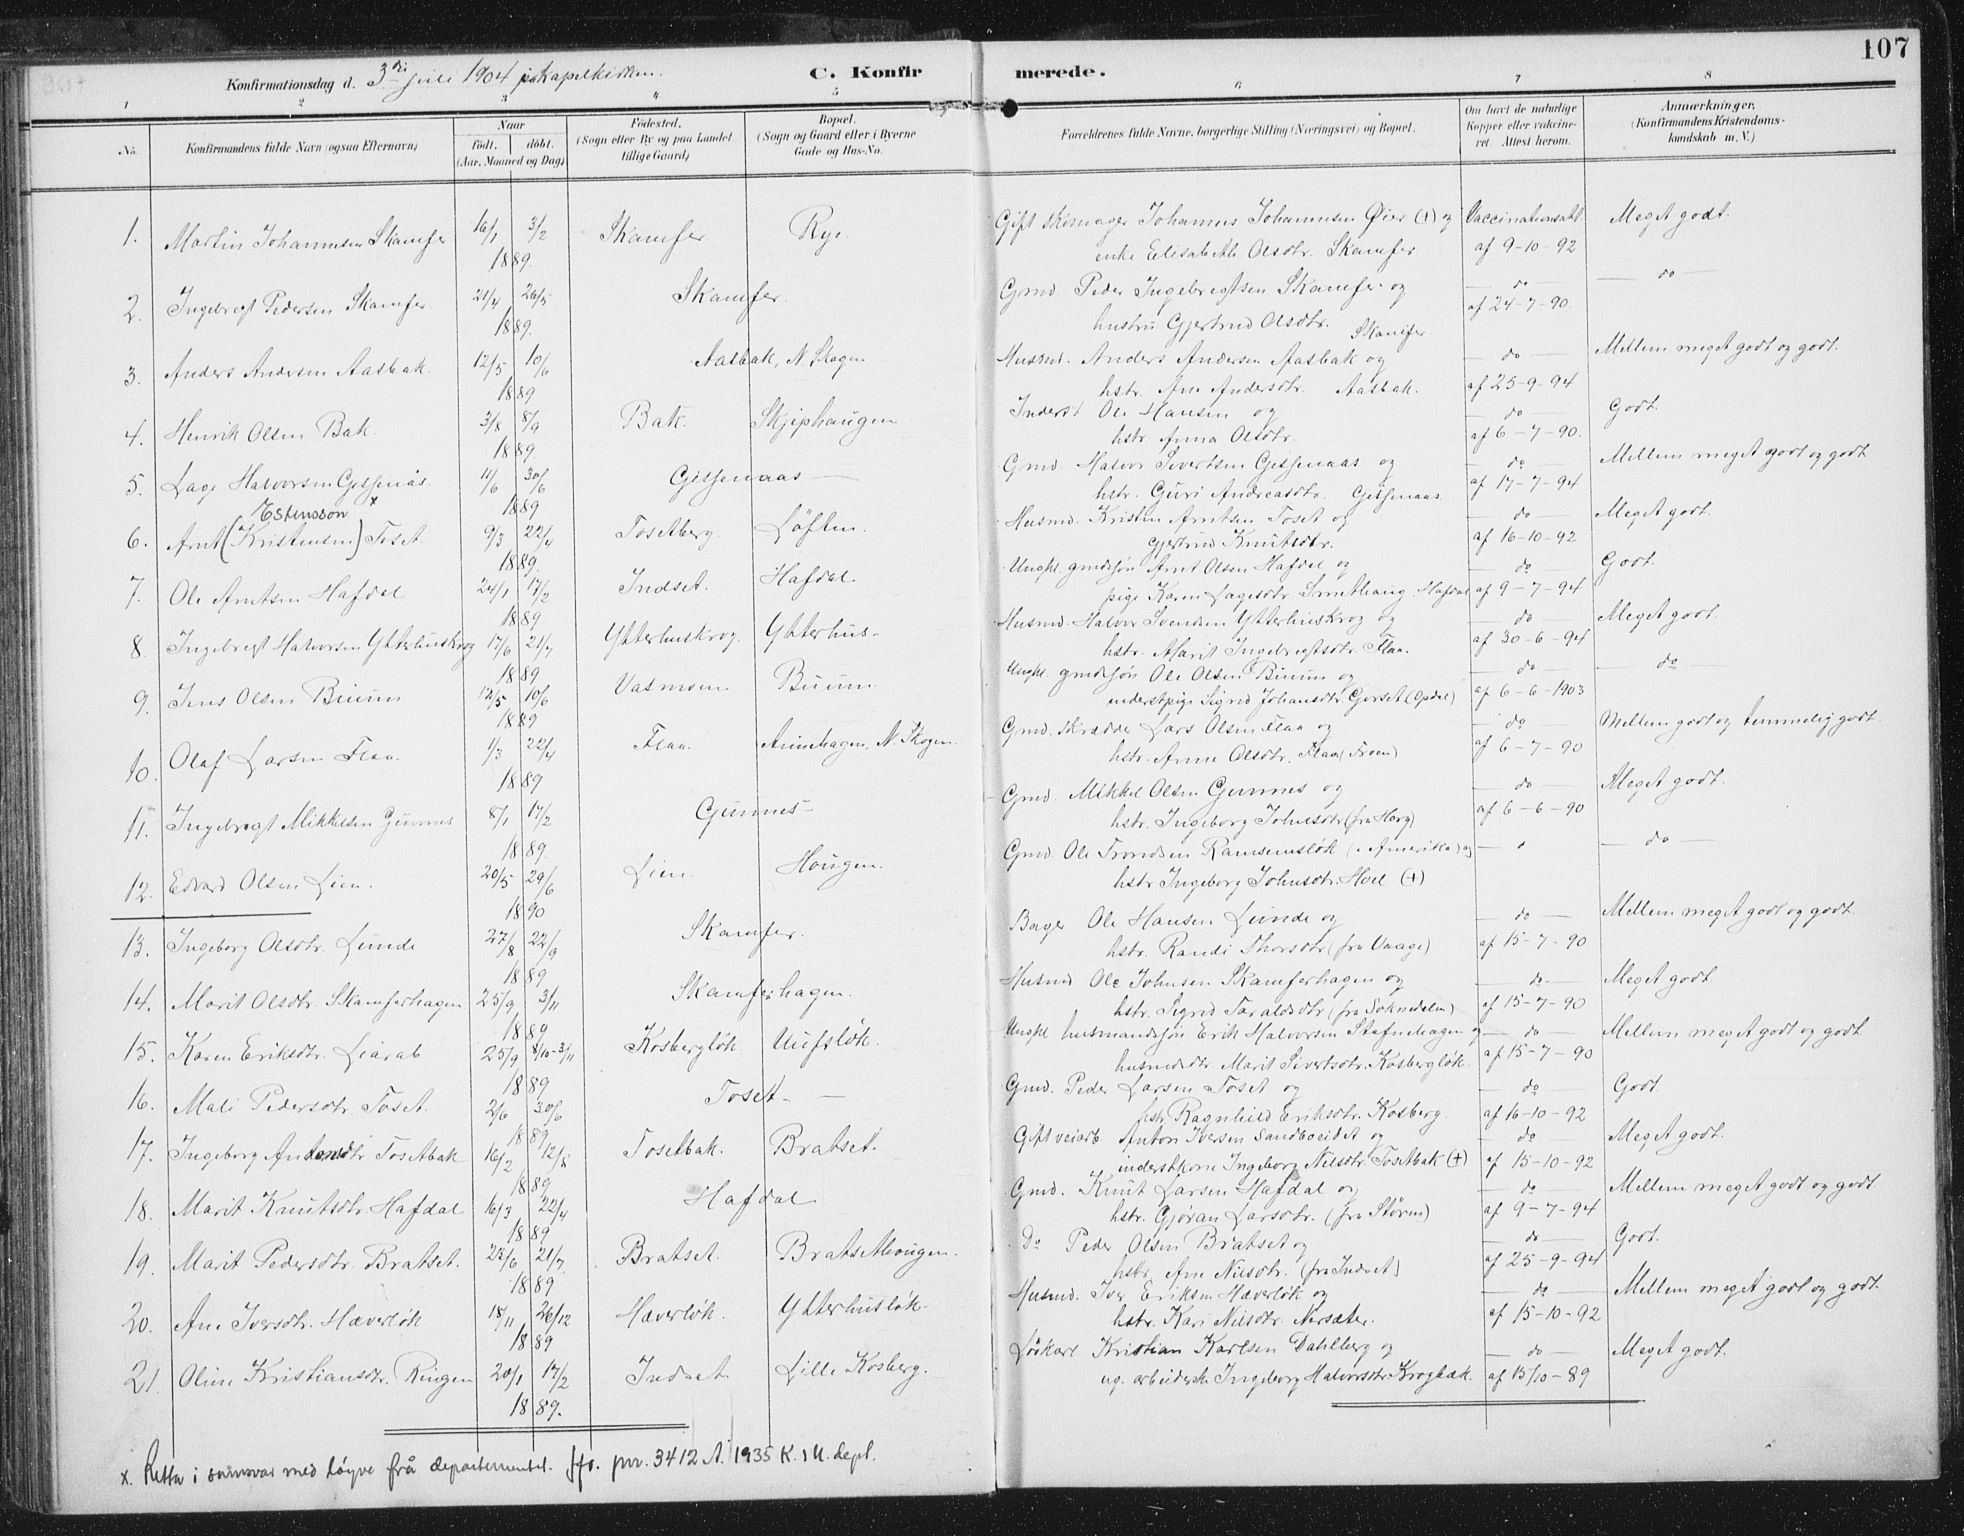 107
Konfirmationsdag d. 3die juli 1904 i kapelkirken.
C. Konfirmerede.
1 2 3 4 5 6 7 8
No. Konfirmandens fulde Navn (ogsaa Efternavn) Naar født. døbt. (Aar, Maaned og Dag) Fødested. (Sogn eller By og paa Landet tillige Gaard) Bopæl. (Sogn og Gaard eller i Byerne Gade og Hus-No. Forældrenes fulde Navne, borgerlige Stilling (Næringsvei) og Bopæl. Om havt de naturlige Kopper eller vakcineret. Attest herom. Anmærkninger. (Konfirmandens Kristendomskundskab m. V.)
1. Martin Johannesen Skamfer 16/1 3/2 1889. Skamfer. Rye. Gift skomager Johannes Johannesen Øier (+) og Vaccinationsatt. Meget godt.
enke Elisabeth Olsdtr. Skamfer. af 9-10-92
2. Ingebregt Pedersen Skamfer 21/4 26/5 1889. Skamfer. Gmd. Peder Ingebregtsen Skamfer og do do
hustru Gjertrud Olsdtr. Skamfer af 24-7-90.
3. Anders Andersen Aasbak. 12/5 10/6 1889 Aasbak, N. Skogen Husmd. Anders Andersen Aasbak og do Mellem meget godt og godt.
hstr. Ane Andersdtr. Aasbak. af 25-9-94
4. Henrik Olsen Bak. 3/8 8/9 1889. Bak. Skjephaugen Inderst Ole Hansen og do Godt.
hstr. Anna Olsdtr. af 6-7-90.
5. Lage Halvorsen Gisjenås. 11/6 30/6 1889 Gisjenaas Gmd. Halvor Sivertsen Gisjenaas og do Mellem meget godt og godt
hstr. Guri Andreasdtr. Gisjenaas. af 17-7-94
Estensson x
6. Arnt (Kristensen) Toset. 9/3 22/4 1889. Tosetberg. Løften. Husmd. Kristen Arntsen Toset og do Meget godt.
Gjertrud Knutsdtr. af 16-10-92
7. Ole Arntsen Hafdal 24/1 17/2 1889 Indset. Hafdal. Ungkl. gmdssøn Arnt Olsen Hafdal og do Godt.
pige Karen Lagesdtr. Hafdal af 9-7-94
8. Ingebregt Halvorsen Ytterhuskrog 17/6 21/7 1889 Ytterhuskrog. Ytterhus- Husmd. Halvor Svendsen Ytterhuskrog og do Meget godt.
hstr. Marit Ingebregtsdtr. Flaa. af 30-6-94
9. Jens Olsen Buum 12/5 10/6 1889 Vasmoen Buum. Ungkl. gmdssøn Ole Olsen Buum og do do
inderstpige Sigrid Johansdtr. Gorset (Opdal) af 6-6-1903
10. Olaf Larsen Flaa. 1/3 22/4 1889 Flaa. Aunehagen, N. Skogen. Gmd. skrædder Lars Olsen Flaa og do Mellem godt og temmelig godt.
hstr. Anne Olsdtr. Flaa (Troen) af 6-7-90
11. Ingebregt Mikkelsen Gunnes 8/1 17/2 1889. Gunnes- Gmd. Mikkel Olsen Gunnes og do Meget godt.
hstr. Ingeborg Johnsdtr (fra Horg) af 6-6-90
12. Edvard Olsen Lien. 20/5 29/6 1890 Lien. Hougen. Gmd. Ole Trondsen Ramsemsløk (i Amerika) og do
hstr Ingeborg Johnsdtr. Hoel (+)
13. Ingeborg Olsdtr. Lunde 27/8 22/9 1889 Skamfer. Bager Ole Hansen Lunde og do Mellem meget godt og godt.
hstr. Randi Thorsdtr (fra Vaage) af 15-7-90
14. Marit Olsdtr. Skamferhagen 25/9 3/11 1889 Skamferhagen. Husmd Ole Johnsen Skamferhagen og do Meget godt.
hstr. Sigrid Taraldsdtr (fra Soknedalen) af 15-7-90
15. Karen Eriksdtr. Liarab 25/9 8/10-3/11 1889 Kosbergløk. Uufsløk. Ungkl husmandssøn Erik Halvorsen Stafnehagen og do Mellem meget godt og godt
husmdsdtr Marit Sivertsdtr. Kosbergløk. af 15-7-90
16. Mali Pedersdtr. Toset. 2/6 30/6 1889 Toset- Gmd. Peder Larsen Toset og do Godt.
hstr. Ragnhild Eriksdtr. Kosberg. af 16-10-92
17. Ingeborg Antonsdtr Tosetbak 16/2 12/5 1889 Tosetbak. Bratset. Gift veiarb. Anton Iversen Sandbreidet og do Meget godt.
inderstkone Ingeborg Nilsdtr. Tosetbak (+) af 15-10-92
18. Marit Knutsdtr. Hafdal 16/3 22/4 1889 Hafdal Gmd. Knut Larsen Hafdal og do Mellem meget godt og godt.
hstr. Gjøran Larsdtr. (fra Støren) af 9-7-94
19. Marit Pedersdtr. Bratset. 23/6 21/7 1889 Bratset. Bratsethougen. Do Peder Olsen Bratset og do Godt.
hstr. Ane Nilsdtr. (fra Indset) af 25-9-94
20. Ane Iversdtr. Hæverløk 18/11 26/12 1889 Hæverløk. Ytterhusløk. Husmd. Iver Eriksen Hæverløk og do Mellem meget godt og godt.
hstr. Kari Nilsdtr. Norsæter. af 15-10-92
21. Oline Kristiansdtr. Ringen 20/1 17/2 1889. Indset. Lille Kosberg. Løskarl Kristian Karlsen Dahlberg og do Meget godt.
ug. arbeiderske Ingeborg Halvorsdtr. Krogbak. af 15/10-89
x. Retta i samsvar med løyve frå departementet. jfr. pnr. 3412 A. 1935 K.i U. dept.